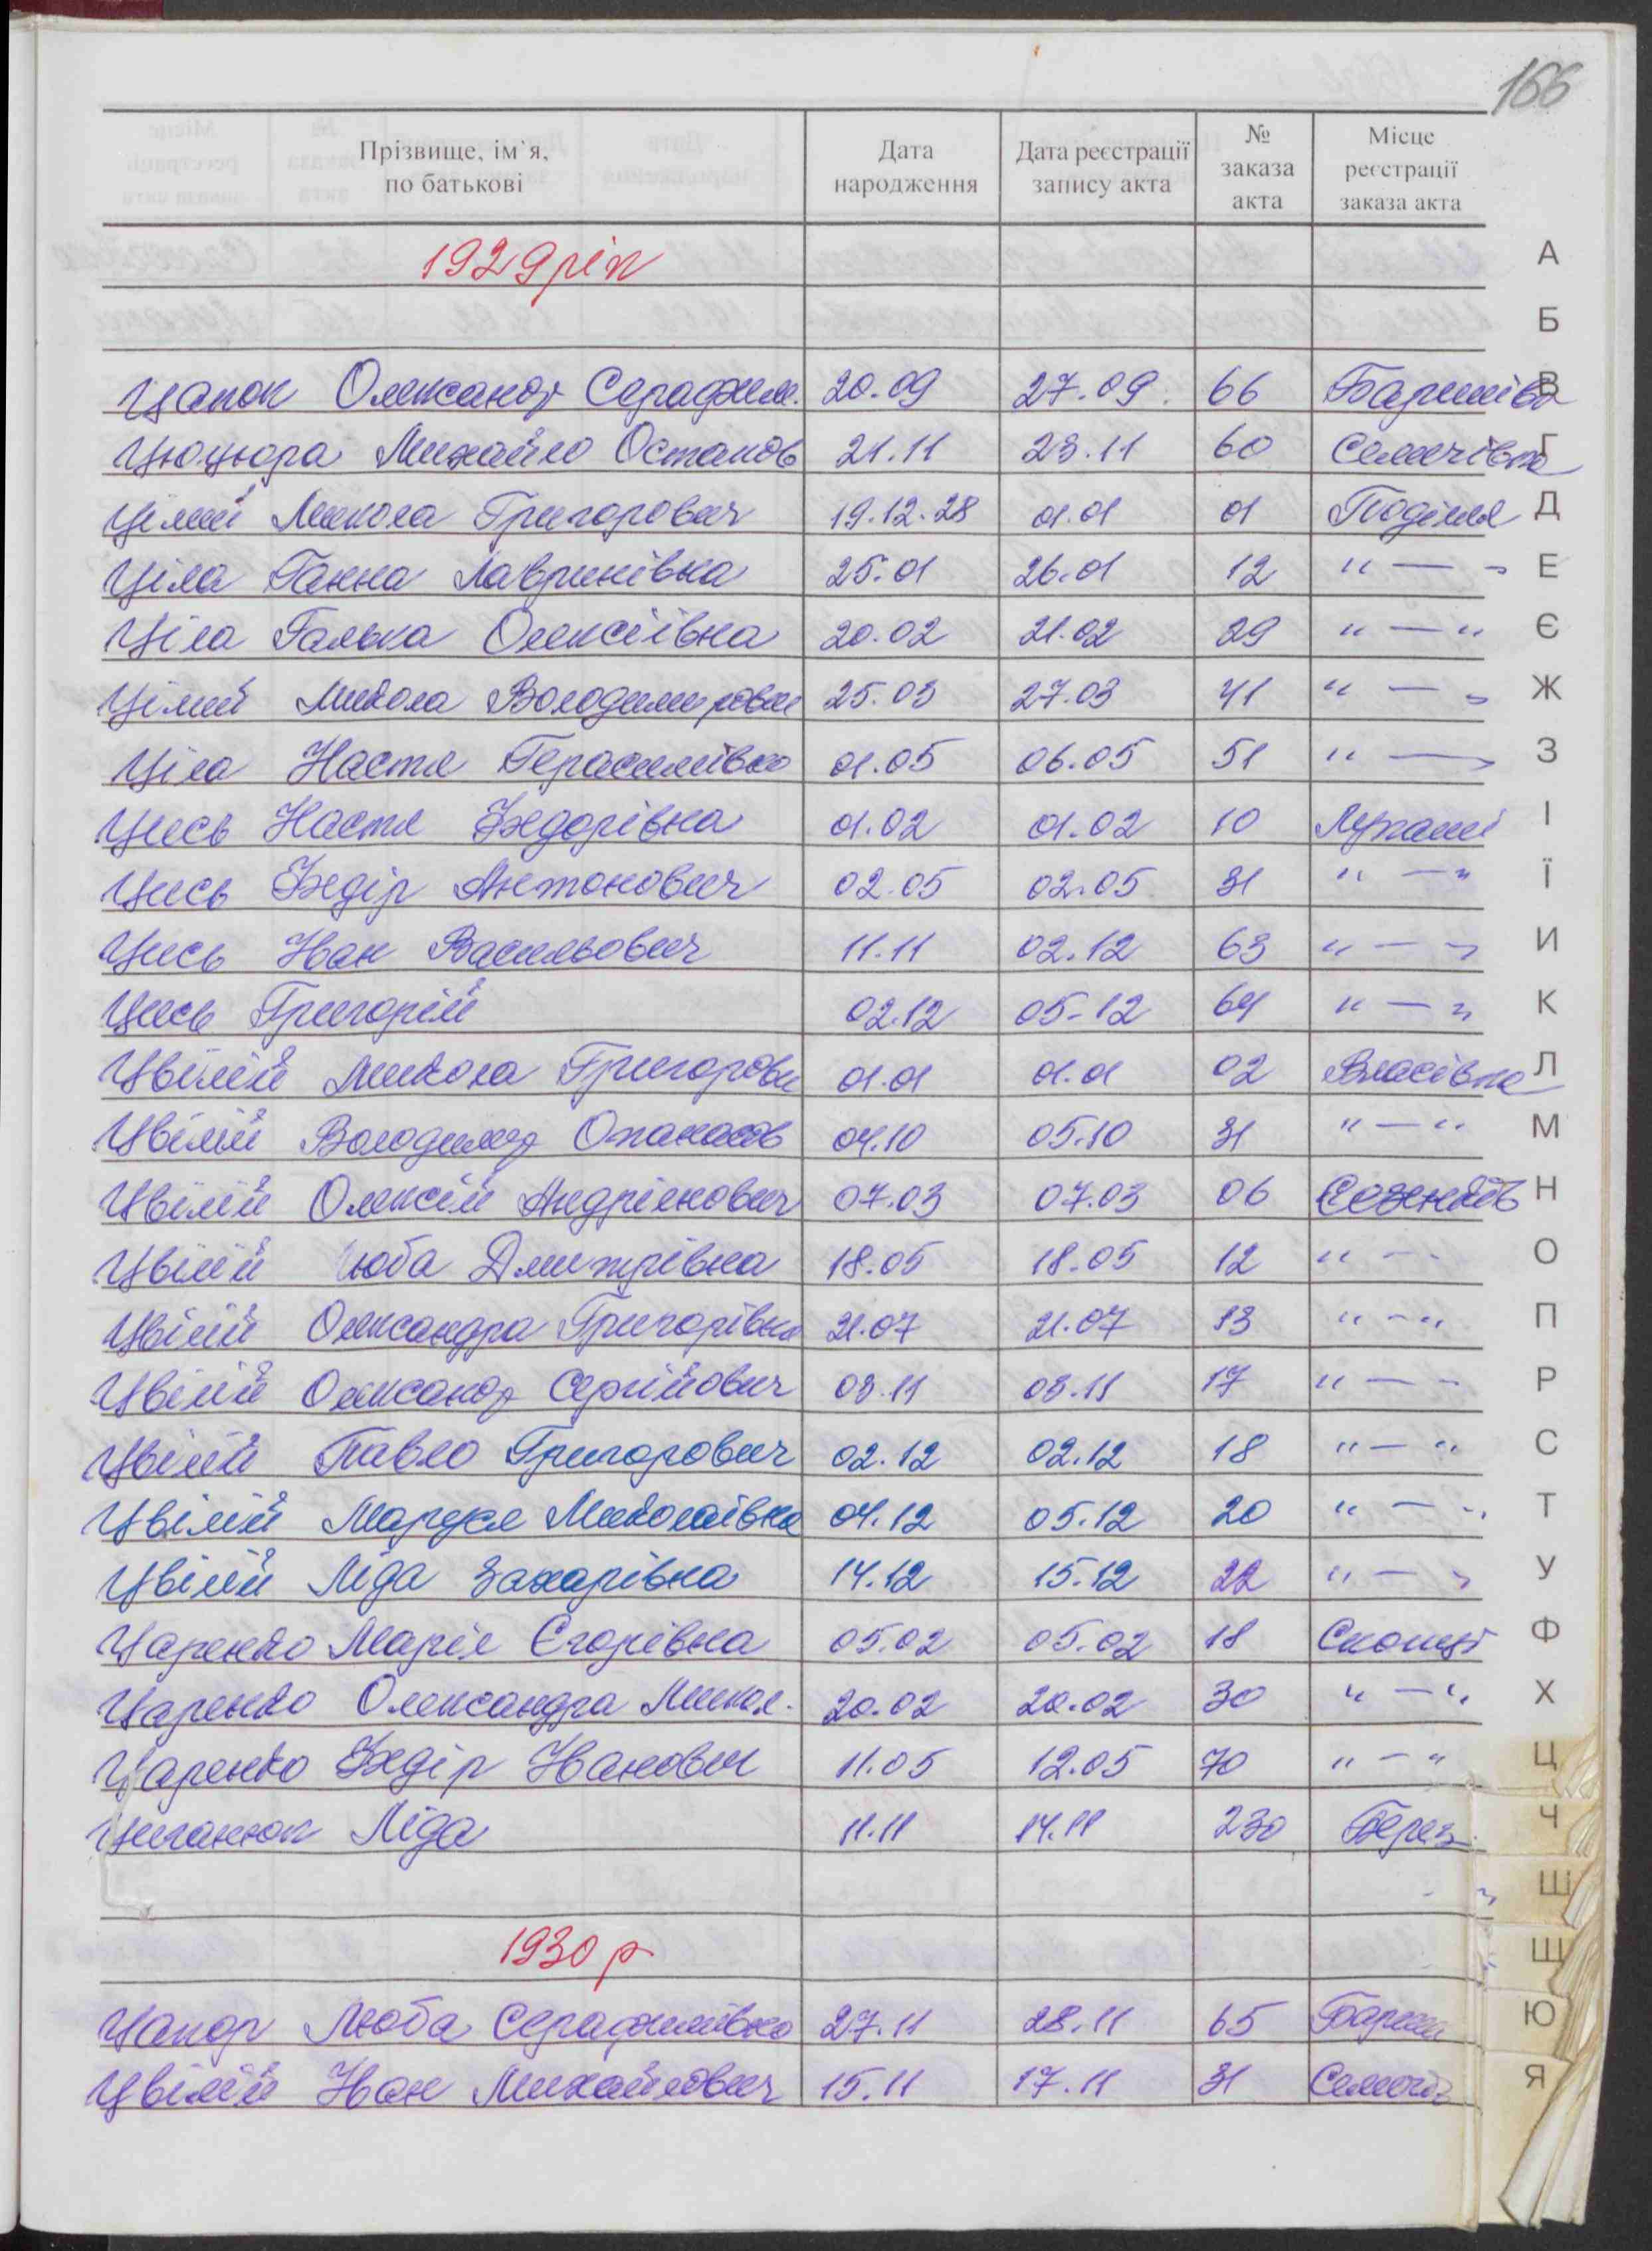 166
Прізвище, ім'я, по батькові Дата народження Дата реєстрації запису акта № заказа акта Місце реєстрації заказа акта
1929 рік
Цапок Олександр Серафим. 20.09 27.09. 66 Баришівка
Цюцюра Михайло Остапов 21.11 23.11 60 Семенівка
Цілий Микола Григорович 19.12.28 01.01 01 Поділля
Ціла Ганна Лавринівна 25.01 26.01 12 " — "
Ціла Галька Олексіївна 20.02 21.02 29 " — "
Цілий Микола Володимирович 25.03 27.03 41 " — "
Ціла Настя Герасимівна 01.05 06.05 51 " — "
Цись Настя Федорівна 01.02 01.02 10 Лукаші
Цись Федір Антонович 02.05 02.05 31 " — "
Цись Іван Васильович 11.11 02.12 63 " — "
Цись Григорій 02.12 05-12 64 " — "
Цвілій Микола Григорови 01.01 01.01 02 Власівка
Цвілій Володимир Опанасов 04.10 05.10 31 " — "
Цвілій Олексій Андріянович 07.03 07.03 06
Цвілій Люба Дмитрівна 18.05 18.05 12 " — "
Цвілій Олександра Григорівна 21.07 21.07 13 " — "
Цвілій Олександр Сергійович 03.11 03.11 17 " — "
Цвілій Павло Григорович 02.12 02.12 18 " — "
Цвілій Маруся Миколаївна 04.12 05.12 20 " — "
Цвілій Ліда Захарівна 14.12 15.12 22 " — "
Царенко Марія Єгорівна 05.02 05.02 18 Скопці
Царенко Олександра Микол. 20.02 20.02 30 " — "
Царенко Федір Іванович 11.05 12.05 70 " — "
Циганюк Ліда 11.11 14.11 230 Берез.
1930 р
Цапок Люба Серафимівна 27.11 28.11 65 Бариш
Цвілій Іван Михайлович 15.11 17.11 31
А
Б
В
Г
Д
Е
Є
Ж
З
І
Ї
И
К
Л
М
Н
О
П
Р
С
Т
У
Ф
Х
Ц
Ч
Ш
Щ
Ю
Я